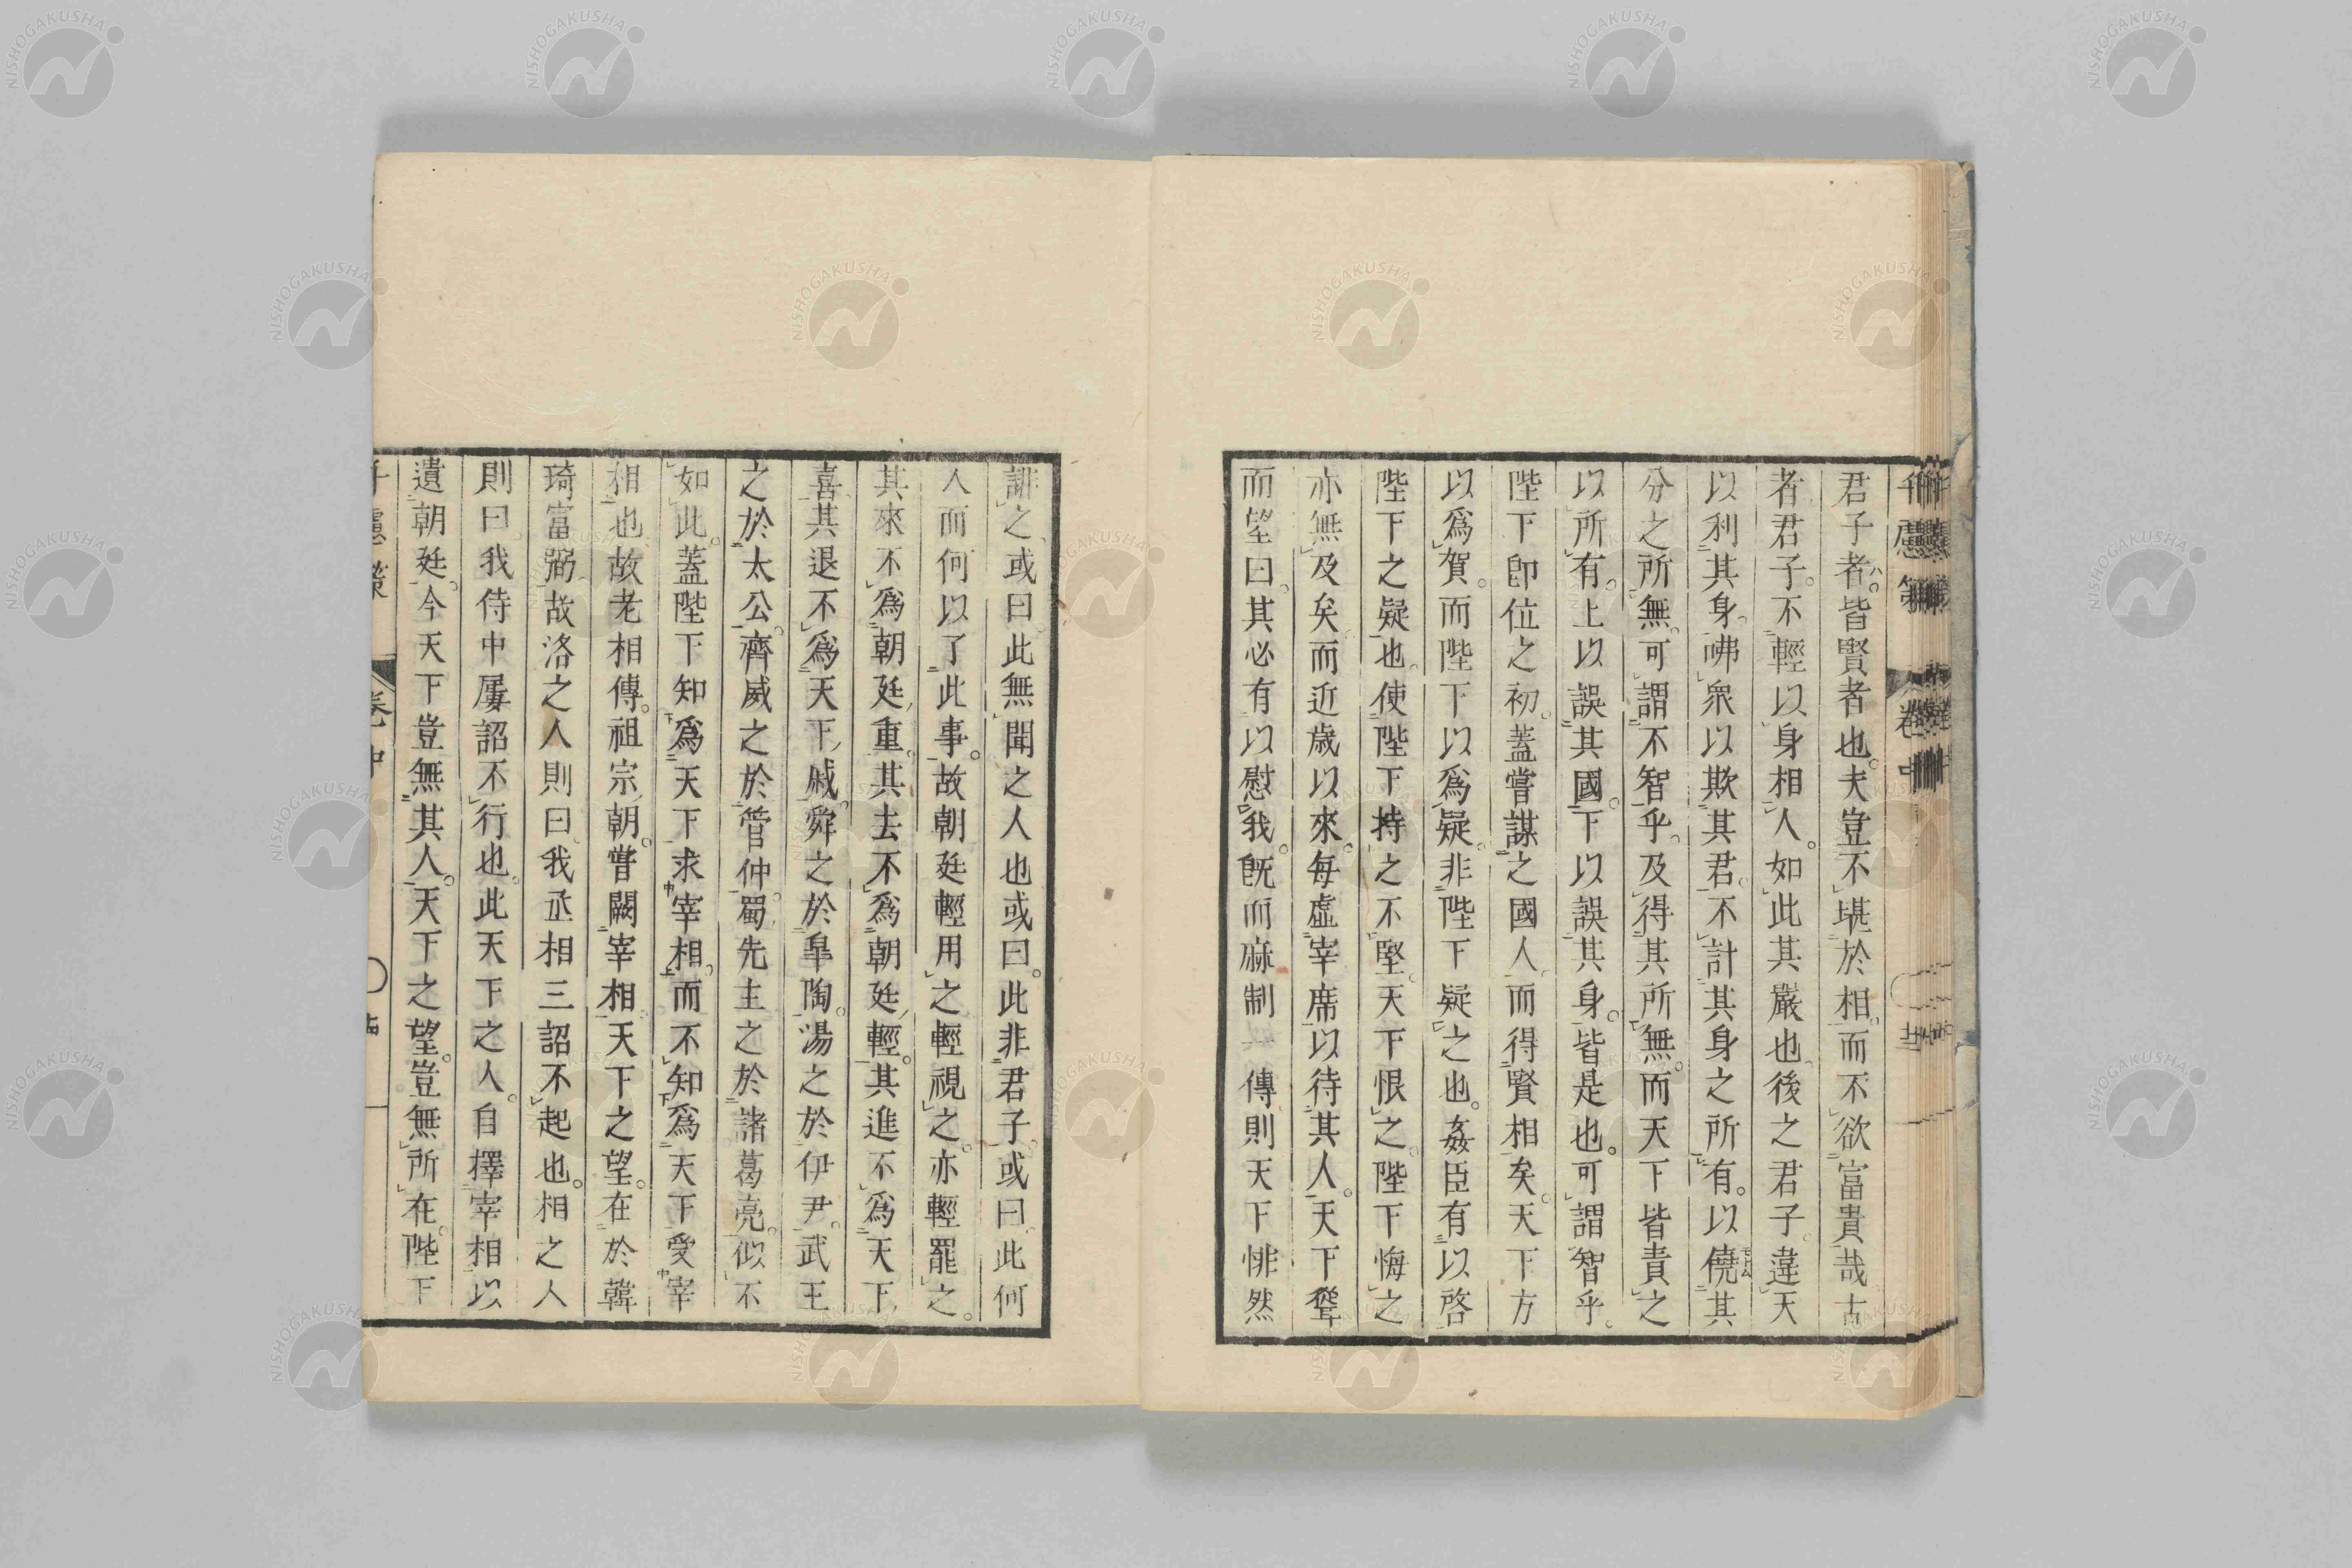 君子者皆賢者也夫豈不堪於相而不欲富貴哉古
者君子不輕以身相人如此其嚴也後之君子違天
以利其身咈衆以欺其君不計其身之所有以僥其
分之所無可謂不智乎及得其所無而天下皆責之
以所有上以誤其國下以誤其身皆是也可謂智乎
陛下卽位之初蓋嘗謀之國人而得賢相矣天下方
以爲賀而陛下以爲疑非陛下疑之也姦臣有以啓
陛下之疑也使陛下持之不堅天下恨之陛下悔之
亦無及矣而近歲以來每虛宰席以待其人天下聳
而望曰其必有以慰我旣而麻制一傳則天下悱然
誹之或曰此無聞之人也或曰此非君子或曰此何
人而何以了此事故朝廷輕用之輕視之亦輕罷之
其來不爲朝廷重其去不爲朝廷輕其進不爲天下
喜其退不爲天下戚舜之於皐陶湯之於伊尹武王
之於太公齊威之於管仲蜀先主之於諸葛亮似不
如此蓋陛下知爲天下求宰相而不知爲天下受宰
相也故老相傳祖宗朝嘗闕宰相天下之望在於韓
琦富弼故洛之人則曰我丞相三詔不起也相之人
則曰我侍中屢詔不行也此天下之人自擇宰相以
遺朝廷今天下豈無其人天下之望豈無所在陛下
千慮策 卷中
NISHOGAKUSHA